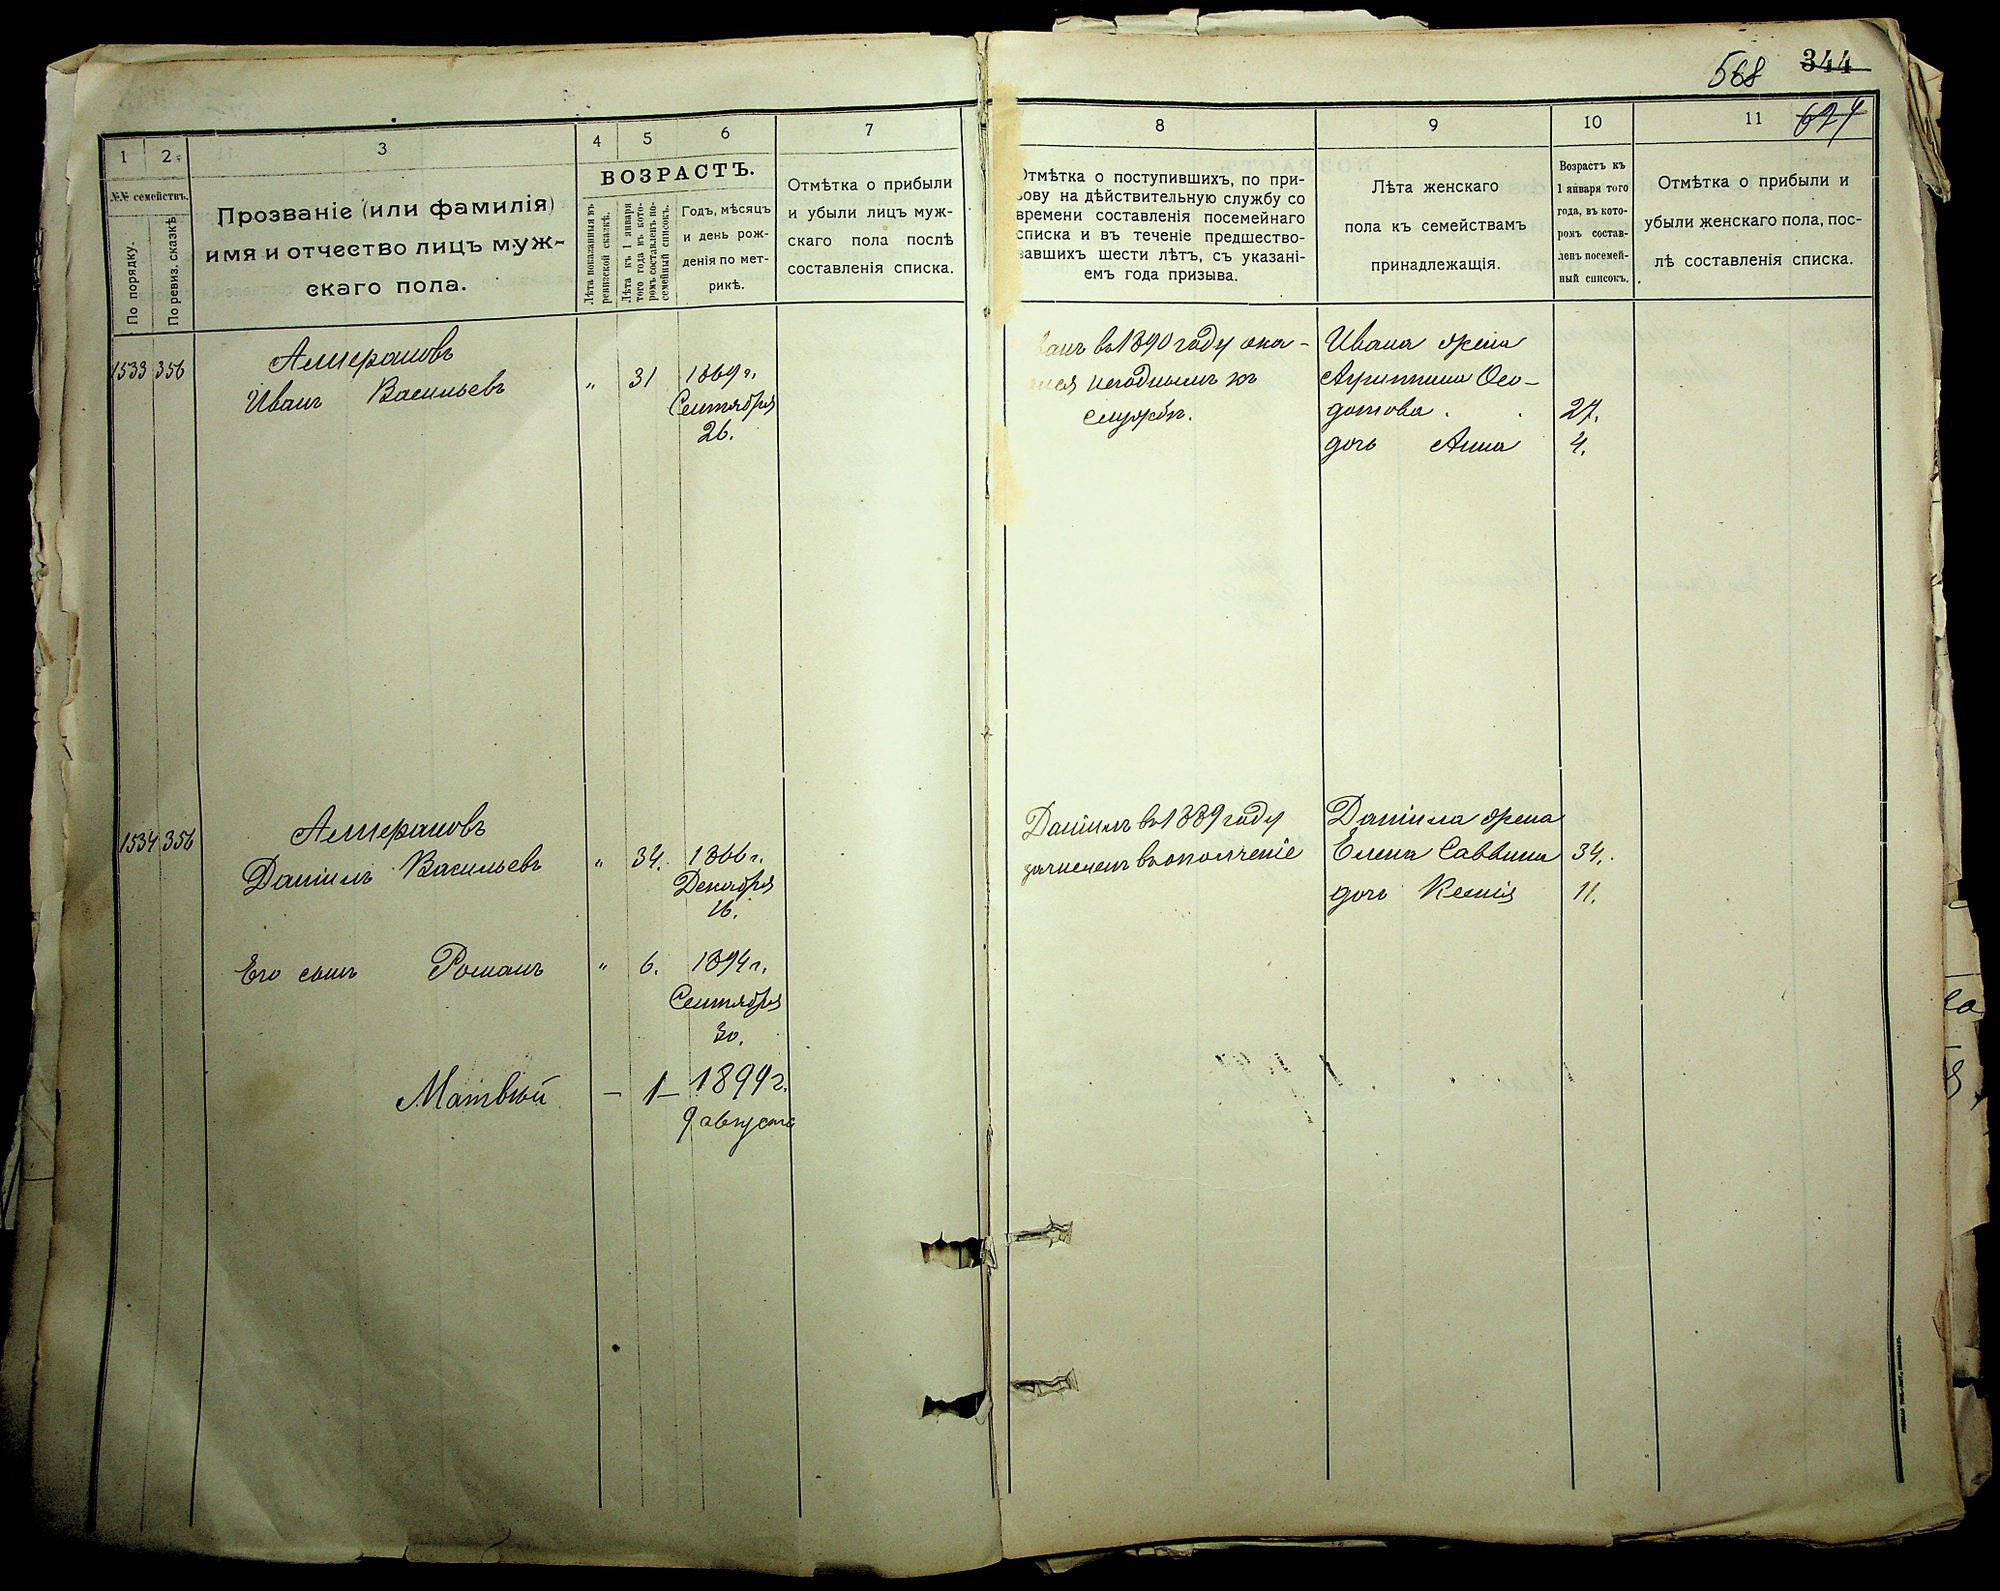 568 344
674
1 2 3 4 5 6 7
№№ семействъ.
По порядку.
По ревиз. сказкѣ
Прозваніе (или фамилія)
имя и отчество лицъ муж-
скаго пола.
ВОЗРАСТЪ.
Лѣта показанныя въ
ревизской сказкѣ.
Лѣта къ 1 января
того года въ кото-
ромъ составленъ по-
семейный списокъ.
Годъ, мѣсяцъ
и день рож-
денія по мет-
рикѣ.
Отмѣтка о прибыли
и убыли лицъ муж-
скаго пола послѣ
составленія списка.
1533 356
Иванъ Васильевъ " 31 1869 г.
Сентября
26.
1534 356
Даніилъ Васильевъ " 34. 1866 г.
Декабря
16.
Его сынъ Романъ " 6. 1894 г.
Сентября
30.
Матвѣй — 1 — 1899 г.
9 августа
8 9 10 11
Отмѣтка о поступившихъ, по при-
зову на дѣйствительную службу со
времени составленія посемейнаго
списка и въ теченіе предшество-
вавшихъ шести лѣтъ, съ указані-
емъ года призыва.
Лѣта женскаго
пола къ семействамъ
принадлежащія.
Возрастъ къ
1 января того
года, въ кото-
ромъ состав-
ленъ посемей-
ный списокъ.
Отмѣтка о прибыли и
убыли женскаго пола, пос-
лѣ составленія списка.
ванъ въ 1890 году ока-
негоднымъ къ
службѣ.
Ивана жена
Агрипина Ѳео-
дотова. 27.
дочь Анна 4.
Даніилъ въ 1889 году
зачисленъ въ ополченіе
Даніила жена
Елена Саввина 34.
дочь Ксенія 11.